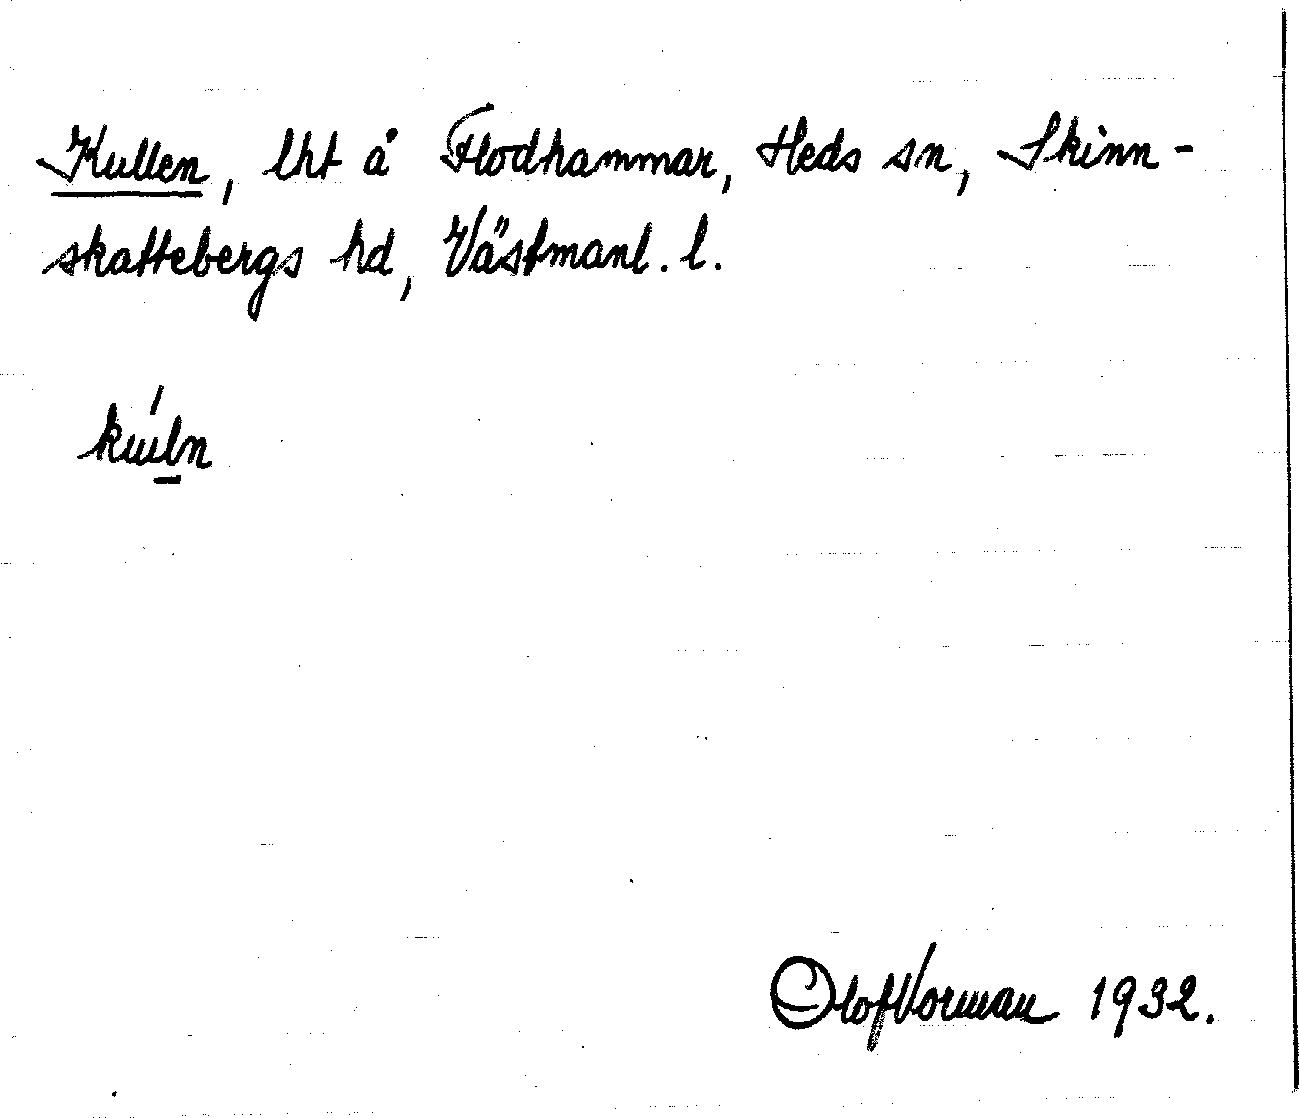 Kullen, lht å Flodhammar, Heds sn, Skinn-
skattebergs hd, Västmanl. l.
Olof Vorman 1932.